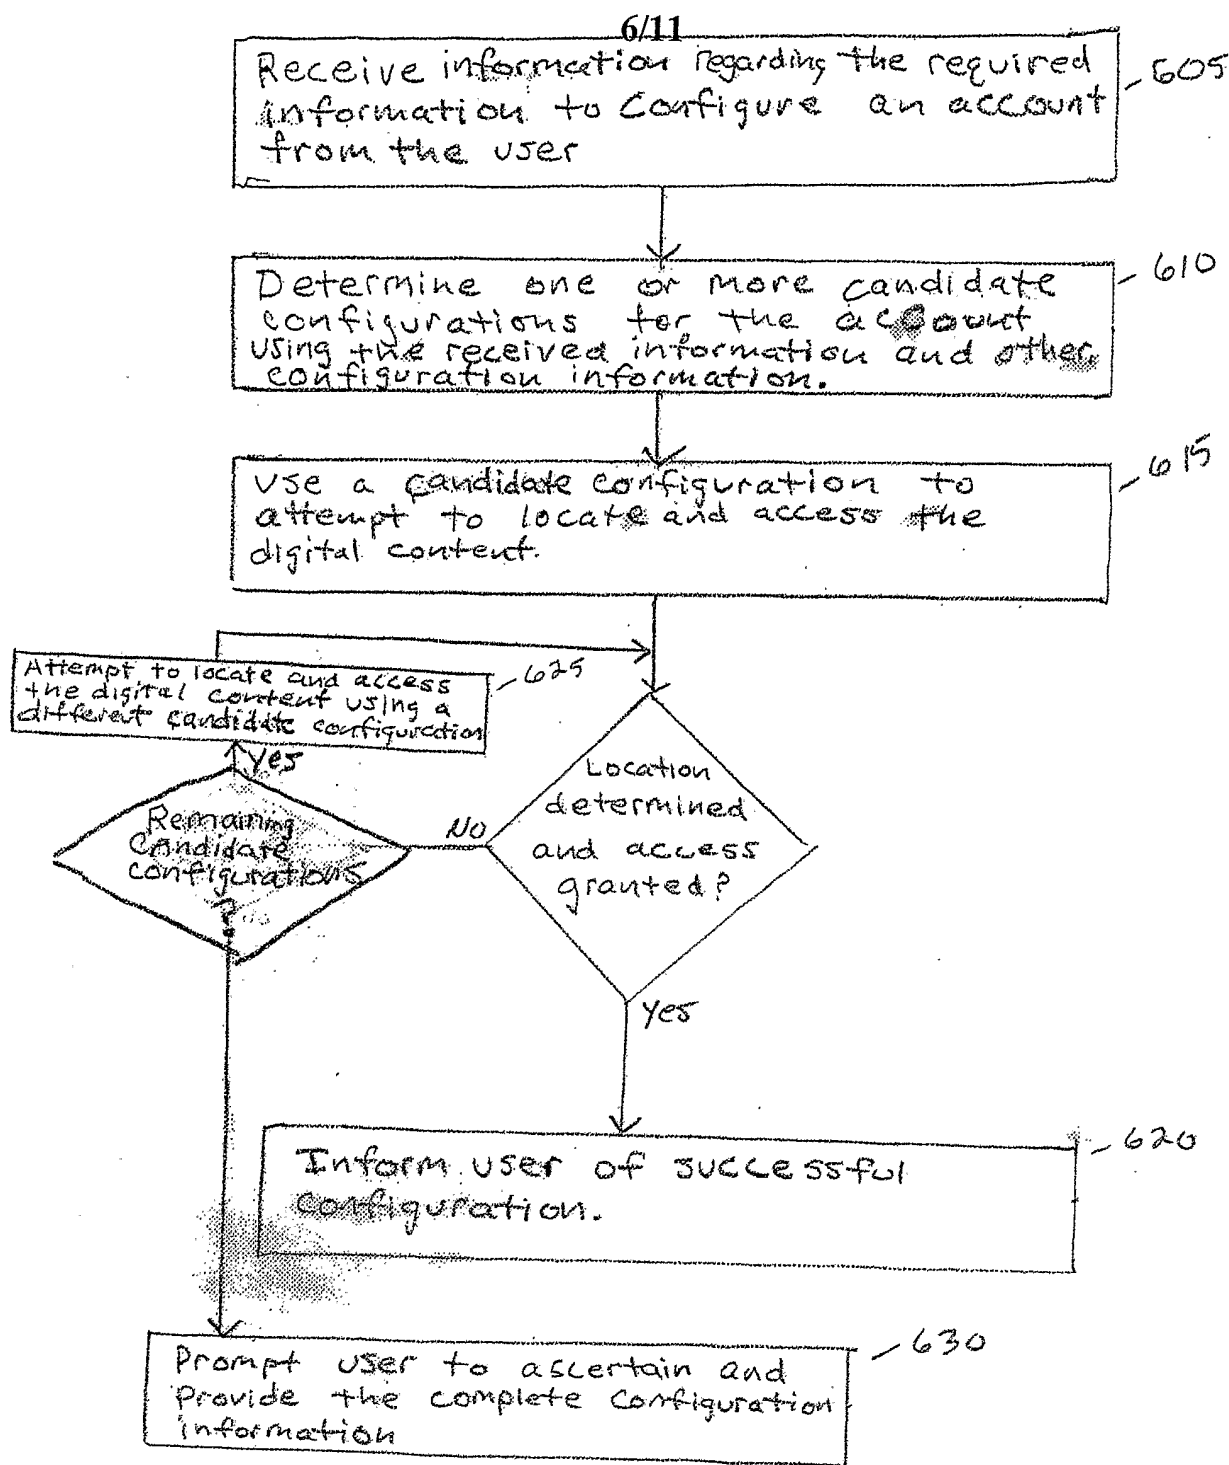 6/11
Receive information regarding the required
information to configure an account
from the user
605
Determine one or more candidate
configurations for the account
using the received information and other
configuration information.
610
Use a candidate configuration to
attempt to locate and access the
digital content.
615
Attempt to locate and access
the digital content using a
different candidate configuration
625
Yes
Remaining
Candidate
configurations
?
No
Location
determined
and access
granted?
Yes
Inform user of successful
configuration.
620
Prompt user to ascertain and
Provide the complete configuration
information
630